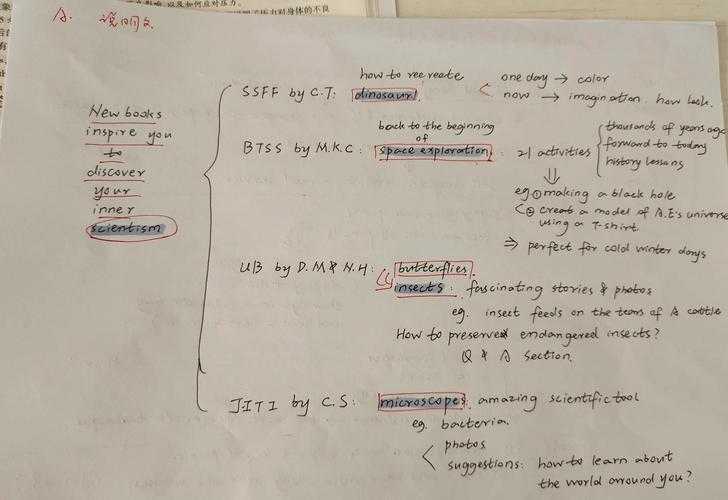 以及如何应对压力。
压力对身体的不良
A. 说明文
New books
inspire you
to
discover
your
inner
scientism
SSFF by C.T:
how to recreate
dinosaur.
one day → color
now → imagination. how look.
BTSS by M.K.C:
back to the beginning
of
space exploration.
21 activities
thousands of years ago
forward to today
history lessons
eg ① making a black hole
② create a model of A.E's universe
using a T-shirt.
⇒ perfect for cold winter days
UB by D.M & N.H:
butterflies.
insects: fascinating stories & photos
eg. insect feeds on the tears of A cattle
How to preserve endangered insects?
Q & A section.
JITI by C.S: microscopes. amazing scientific tool
eg. bacteria.
photos
suggestions: how to learn about
the world around you?